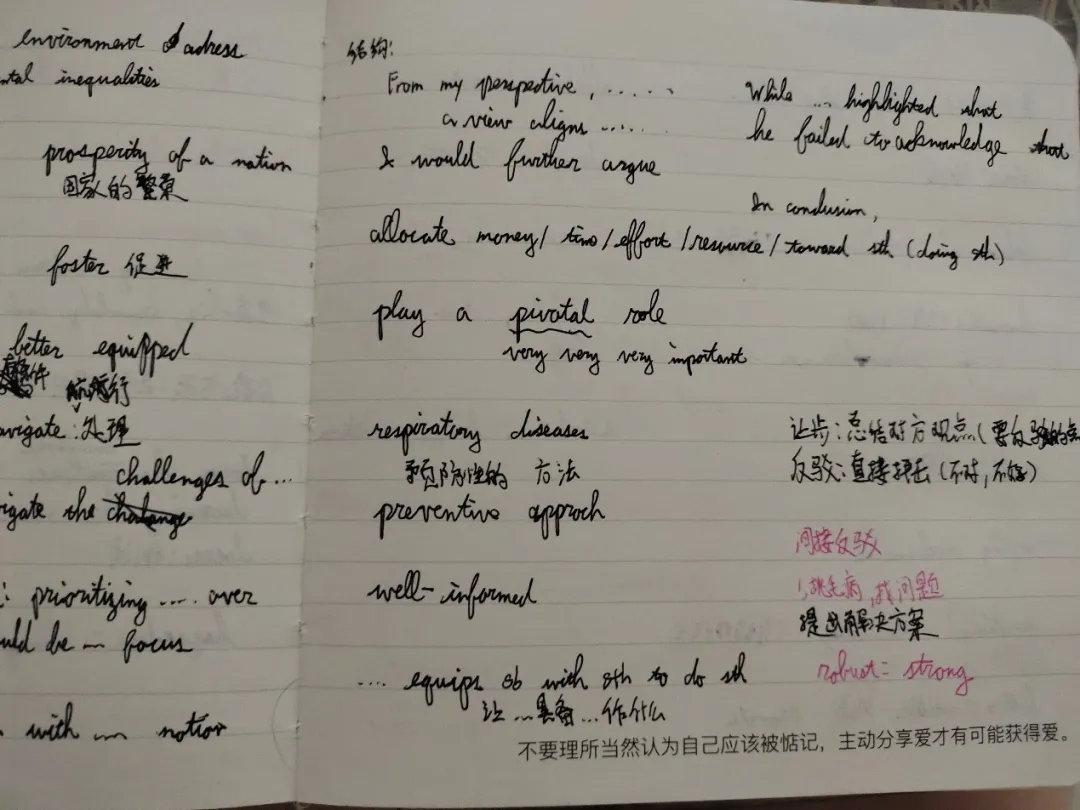 environment & adress
ntal inequalities
prosperity of a nation
国家的繁荣
foster 促进
better equipped
航运行
avigate: 处理
challenges of ...
igate the
: prioritizing .... over
uld be ... focus
with ... notion
结构:
From my perspective, ......
a view aligns .....
I would further argue
While ... highlighted that
he failed to acknowledge that
In conclusion,
allocate money/ time/effort /resource/ toward sth (doing sth)
play a pivotal role
very very very important
respiratory diseases
预防性的 方法
preventive approch
well-informed
.... equips sb with sth to do sth
让...具备...作什么
让步:总结对方观点(要反驳的
反驳:直接抨击(不对,不好)
间接反驳
1,挑毛病,找问题
提出解决方案
robust = strong
不要理所当然认为自己应该被惦记,主动分享爱才有可能获得爱。